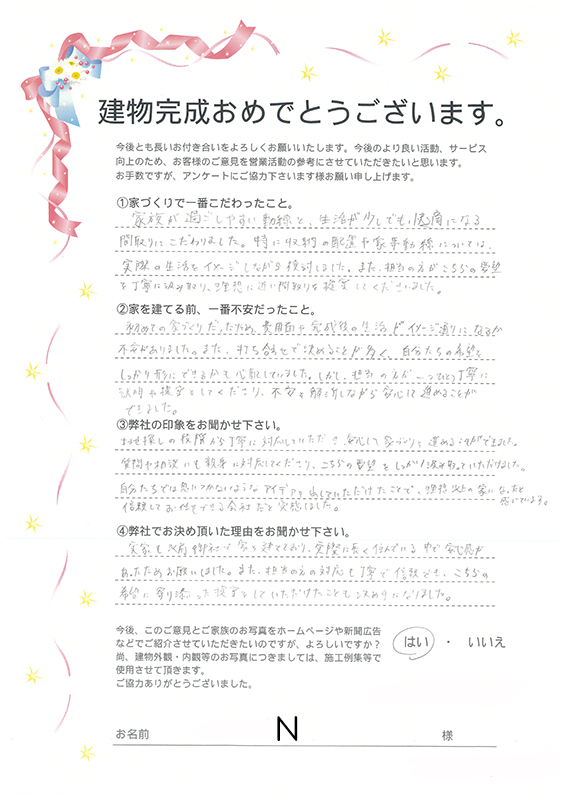 建物完成おめでとうございます。
今後とも長いお付き合いをよろしくお願いいたします。今後のより良い活動、サービス
向上のため、お客様のご意見を営業活動の参考にさせていただきたいと思います。
お手数ですが、アンケートにご協力下さいます様お願い申し上げます。
①家づくりで一番こだわったこと。
家族が過ごしやすい動線と、生活が少しでも便利になる
間取りにこだわりました。特に収納の配置や家事動線については、
実際の生活をイメージしながら検討しました。また、担当の方がこちらの要望
を丁寧に汲み取り、理想に近い間取りを提案してくださいました。
②家を建てる前、一番不安だったこと。
初めての家づくりだったため、費用面や完成後の生活がイメージ通りになるか
不安がありました。また、打ち合せで決めることが多く、自分たちの希望を
しっかり形にできるかも心配していました。しかし、担当の方が一つひとつ丁寧に
説明や提案をしてくださり、不安を解消しながら安心して進めることが
できました。
③弊社の印象をお聞かせ下さい。
土地探しの段階から丁寧に対応していただき、安心して家づくりを進めることができました。
質問や相談にも親身に対応してくださり、こちらの要望をしっかり汲み取っていただけました。
自分たちでは思いつかないようなアイデアも出していただけたことで、理想以上の家になったと
感じています。
信頼してお任せできる会社だと実感しました。
④弊社でお決め頂いた理由をお聞かせ下さい。
実家も以前御社で家を建てており、実際に長く住んでいる中で安心感が
あったためお願いしました。また、担当の方の対応も丁寧で信頼でき、こちらの
希望に寄り添った提案をしていただけたことも決め手になりました。
今後、このご意見とご家族のお写真をホームページや新聞広告
などでご紹介させていただきたいのですが、よろしいですか？
尚、建物外観・内観等のお写真につきましては、施工例集等で
使用させて頂きます。
ご協力ありがとうございました。
はい ・ いいえ
お名前 N 様